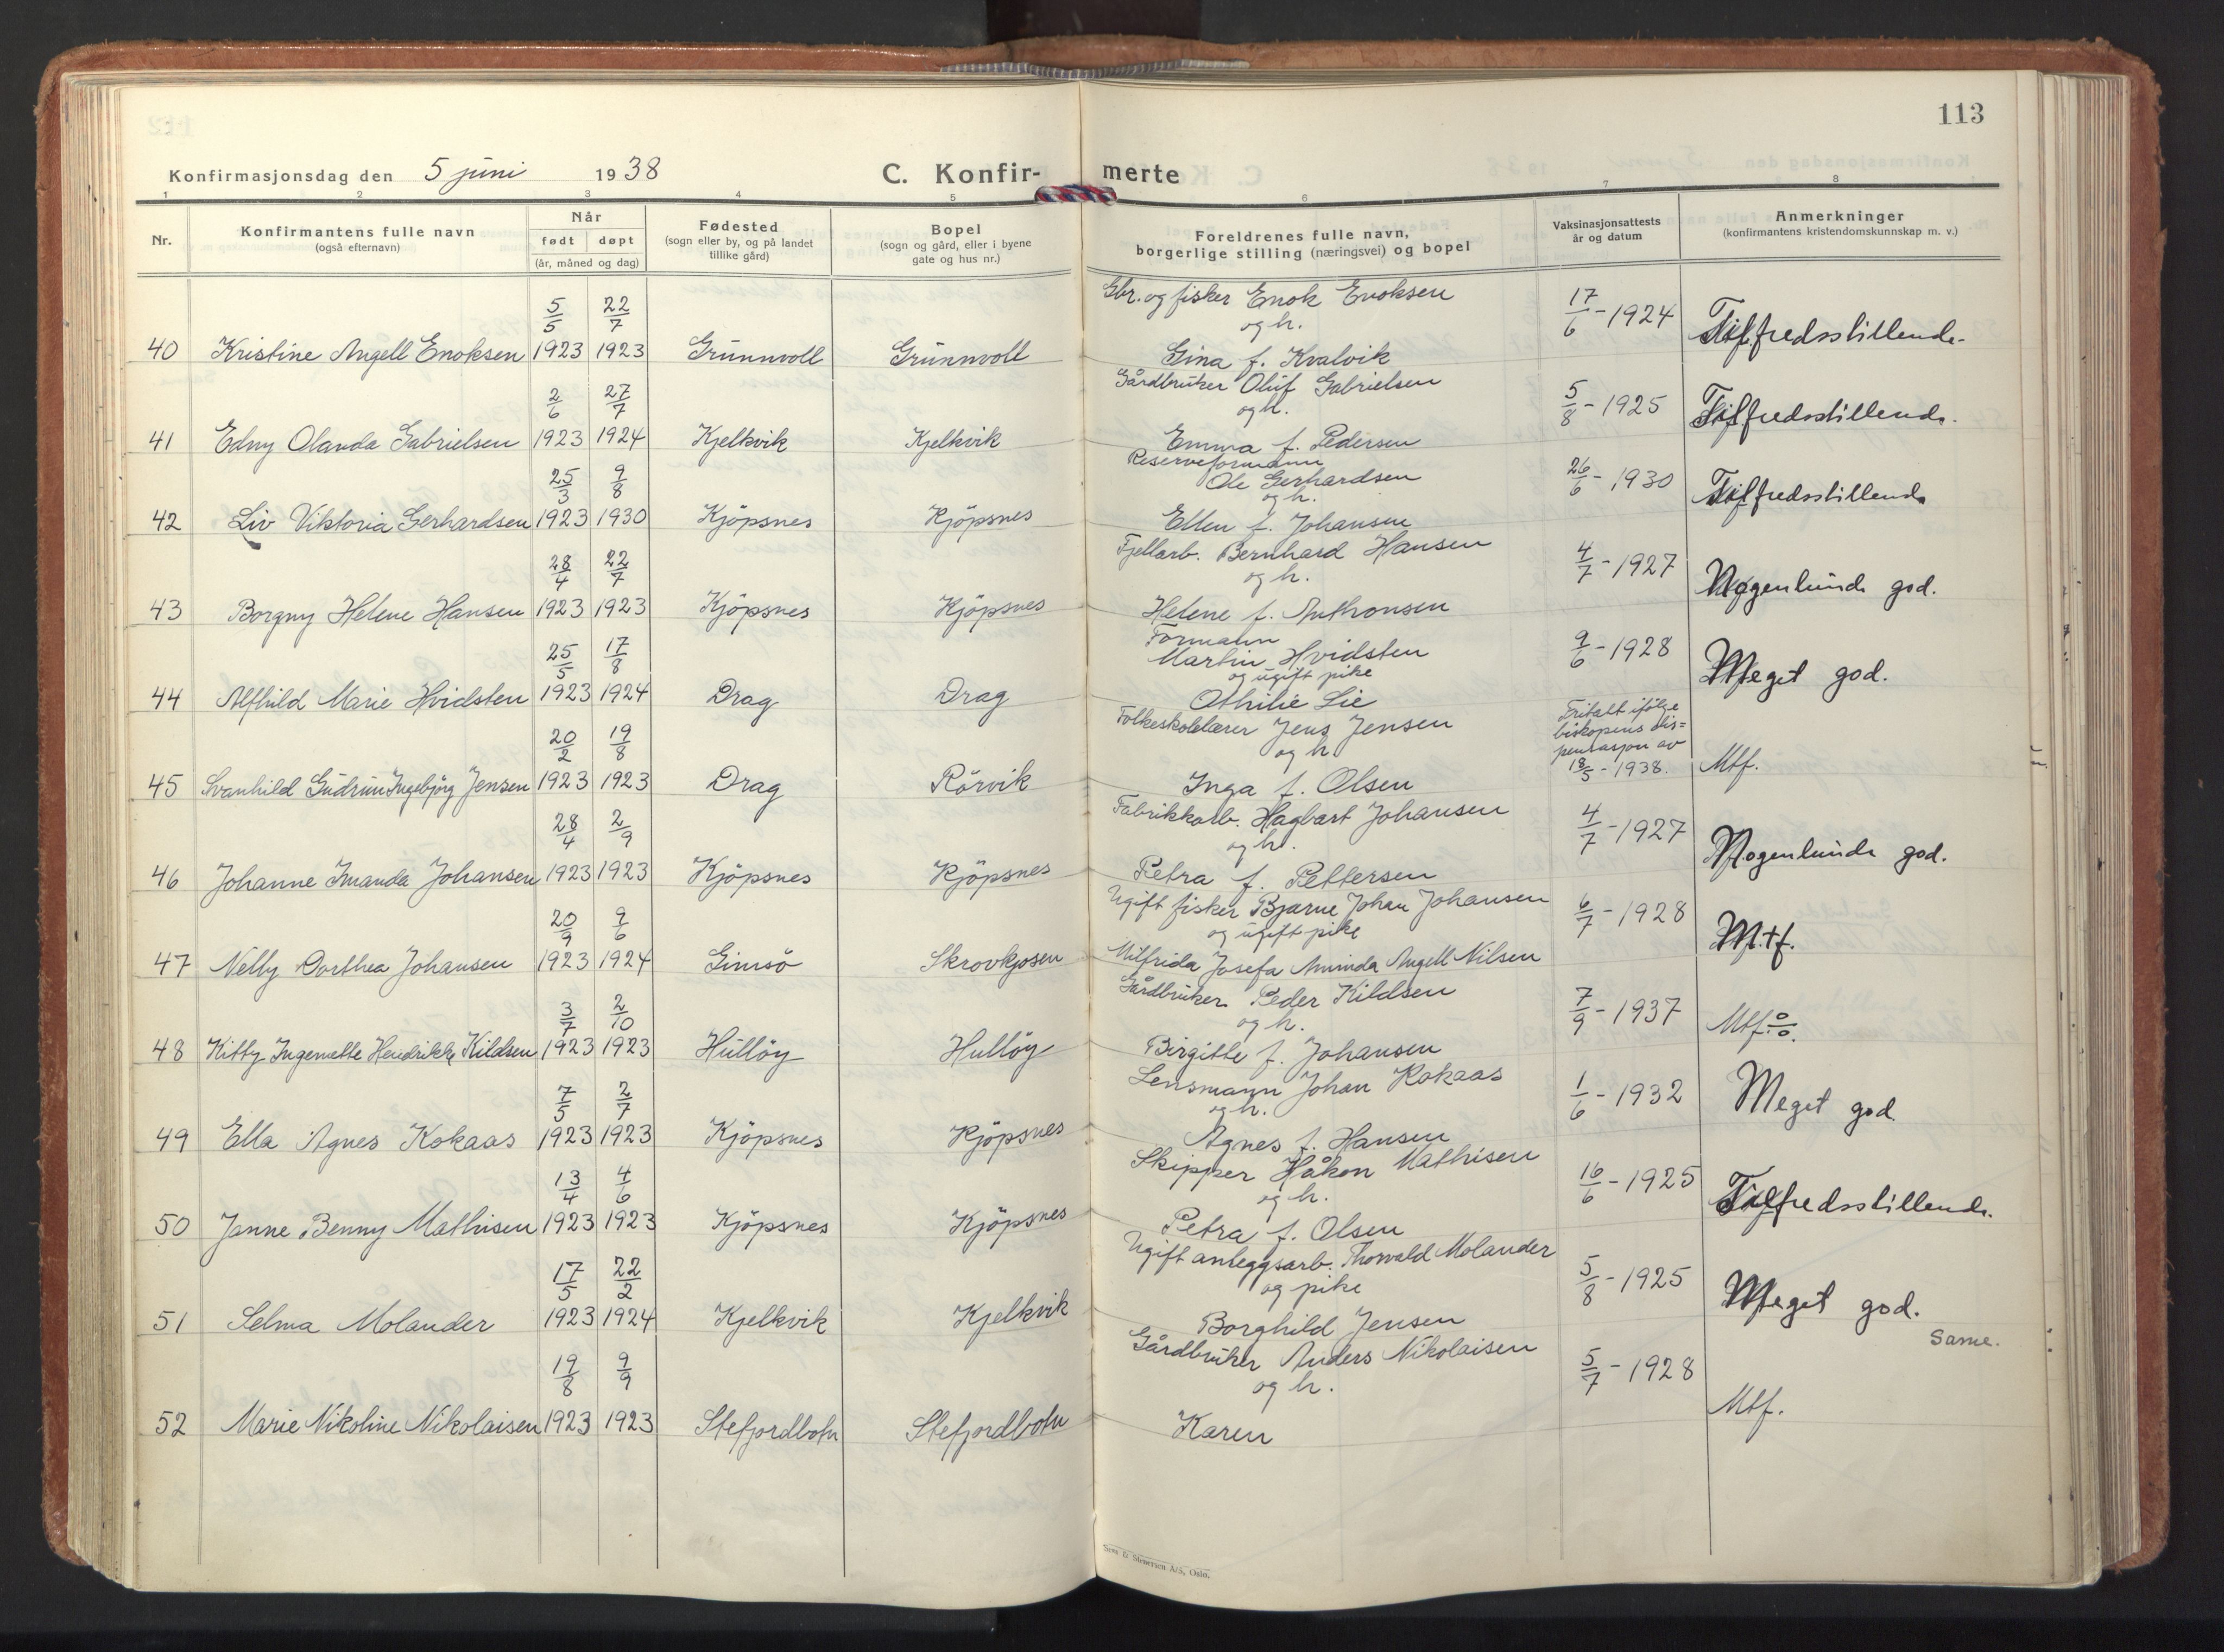 113
Konfirmasjonsdag den 5 juni 1938 C. Konfir- merte
1 2 3 4 5 6 7 8
Nr.
Konfirmantens fulle navn
(også efternavn)
Når
født døpt
(år, måned og dag)
Fødested
(sogn eller by, og på landet
tillike gård)
Bopel
(sogn og gård, eller i byene
gate og hus nr.)
Foreldrenes fulle navn,
borgerlige stilling (næringsvei) og bopel
Vaksinasjonsattests
år og datum
Anmerkninger
(konfirmantens kristendomskunnskap m. v.)
5/5 22/7 Gbr. og fisker Enok Enoksen 17/6-1924
og h. Tilfredsstillende.
40 Kristine Angell Enoksen 1923 1923 Grunnvoll Grunnvoll Gina f. Kvalvik
2/6 27/7 Gårdbruker Oluf Gabrielsen 5/8-1925 Tilfredsstillende.
og h.
41 Edny Olanda Gabrielsen 1923 1924 Kjelkvik Kjelkvik Emma f. Pedersen
25/3 9/8 Reserveformann
Ole Gerhardsen 26/6-1930 Tilfredsstillende
og h.
42 Liv Viktoria Gerhardsen 1923 1930 Kjöpsnes Kjöpsnes Ellen f. Johansen
28/4 22/7 Fjellarb. Bernhard Hansen 4/7-1927
og h. Nogenlunde god.
43 Borgny Helene Hansen 1923 1923 Kjöpsnes Kjöpsnes Helene f. Anthonsen
25/5 17/8 Formann
Martin Hvidsten 9/6-1928
og ugift pike Meget god.
44 Alfhild Marie Hvidsten 1923 1924 Drag Drag Othilie Lie
20/2 19/8 Folkeskolelærer Jens Jensen Fritatt ifölge
og h. biskopens dis=
pensasjon av
18/5-1938. Mtf.
45 Svanhild Gudrun Ingebjörg Jensen 1923 1923 Drag Rörvik Inga f. Olsen
28/4 2/9 Fabrikkarb. Hagbart Johansen 4/7-1927
og h. Nogenlunde god.
46 Johanne Imanda Johansen 1923 1923 Kjöpsnes Kjöpsnes Petra f. Pettersen
20/9 9/6 Ugift fisker Bjarne Johan Johansen 6/7-1928
og ugift pike M.tf.
47 Nelly Dorthea Johansen 1923 1924 Gimsö Skrovkjosen Milfrida Josefa Aminda Angell Nilsen
3/7 2/10 Gårdbruker Peder Kildsen 7/9-1937
og h. Mtf.
48 Kitty Ingenette Hendrikke Kildsen 1923 1923 Hullöy Hullöy Birgitte f. Johansen
7/5 2/7 Lensmann Johan Kokaas 1/6-1932 Meget god
og h.
49 Ella Agnes Kokaas 1923 1923 Kjöpsnes Kjöpsnes Agnes f. Hansen
13/4 4/6 Skipper Håkon Mathisen 16/6-1925
og h. Tilfredsstillende.
50 Janne Benny Mathisen 1923 1923 Kjöpsnes Kjöpsnes Petra f. Olsen
17/5 22/2 Ugift anleggsarb. Thorvald Molander 5/8-1925
og pike Meget god.
51 Selma Molander 1923 1924 Kjelkvik Kjelkvik Borghild Jensen
19/8 9/9 Gårdbruker Anders Nikolaisen 5/7-1928 Same.
og h. Mtf.
52 Marie Nikoline Nikolaisen 1923 1923 Stefjordbotn Stefjordbotn Karen
Sem & Stenersen A/S, Oslo.